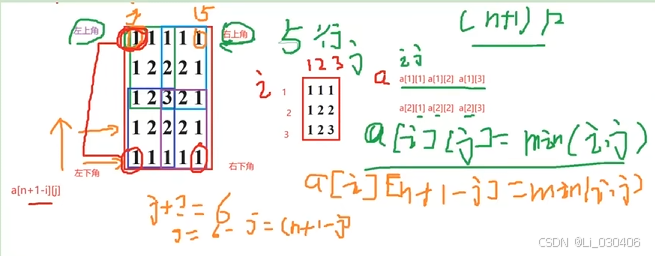 1 5
左上角
右上角
1 1 1 1 1
1 2 2 2 1
1 2 3 2 1
1 2 2 2 1
1 1 1 1 1
左下角
右下角
a[n+1-i][j]
5 行
j
i
1 2 3
1 1 1 1
2 1 2 2
3 1 2 3
(n+1)/2
a
i j
a[1][1] a[1][2] a[1][3]
a[2][1] a[2][2] a[2][3]
a[i][j]=min(i,j)
a[i][n+1-j]=min(i,j)
=6
j=(n+1-j)
CSDN @Li_030406